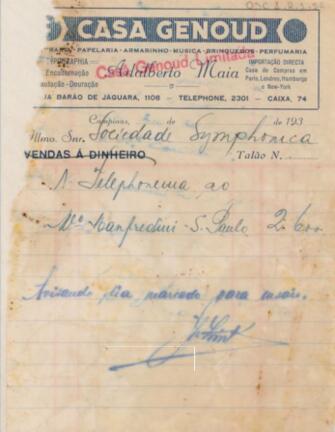 CASA GENOUD
PAPELARIA - ARMARINHO - MUSICA - BRINQUEDOS - PERFUMARIA
Casa Genoud Limitada
Adalberto Maia
Encadernação
Pautação - Douração
IMPORTAÇÃO DIRECTA
Casa de Compras em
Paris, Londres, Hamburgo
e New-York
RUA BARÃO DE JAGUARA, 1108 — TELEPHONE, 2301 — CAIXA, 74
Campinas, de de 193
Illmo. Snr. Sociedade Symphonica
VENDAS Á DINHEIRO Talão N.
1 Telephonema ao
Mº Manfredini - S. Paulo 2
Avisando dia marcado para ensaio.